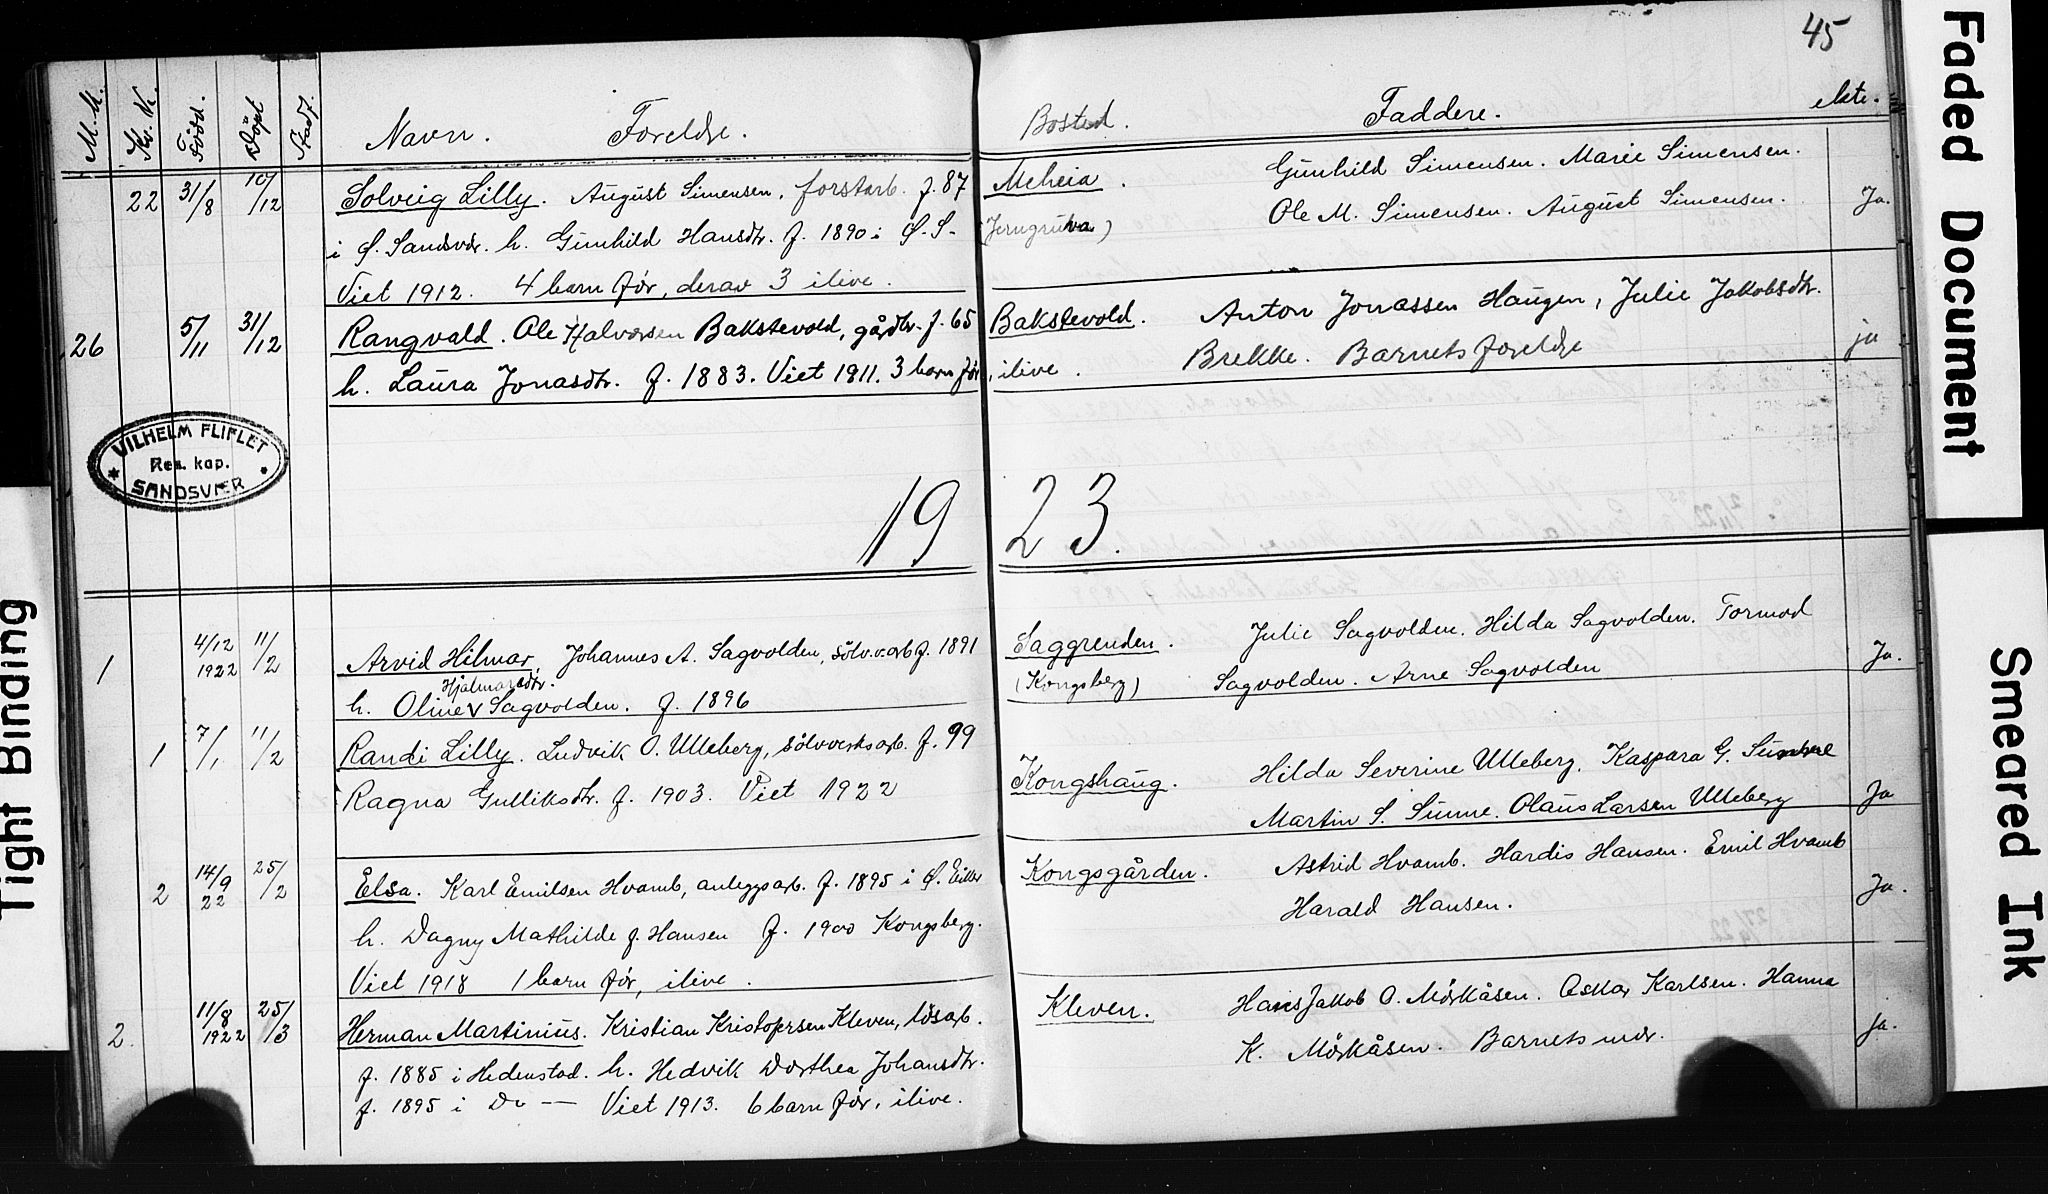 45
M. K. Kv. K. Född. Döpt Stadf. Navn. Foreldre. Bosted. Faddere. ekte.
22 31/8 10/12 Solveig Lilly. August Simensen, forstarb. f. 87 Meheia. Gunhild Simensen. Marie Simensen.
i Ø. Sandsvær. h. Gunhild Hansdtr. f. 1890 i Ø. S. (Jerngruva) Ole M. Simensen. August Simensen. Ja.
Viet 1912. 4 barn før, derav 3 ilive.
26 5/11 31/12 Rangvald. Ole Halvorsen Bakstevold, gårdbr. f. 65 Bakstevold. Anton Jonassen Haugen, Julie Jakobsdtr.
h. Laura Jonasdtr. f. 1883. Viet 1911. 3 barn før, ilive. Brekke. Barnets foreldre ja
VILHELM FLIFLET
Res. kap.
SANDSVÆR
19 23.
1 4/12 1922 11/2 Arvid Hilmar, Johannes A. Sagvolden, sölv.v.arb f. 1891 Saggrenden. Julie Sagvolden. Hilda Sagvolden. Tormod
Hjalmarsdtr.
h. Oline v Sagvolden. f. 1896 (Kongsberg) Sagvolden. Arne Sagvolden Ja.
1 7/1 11/2 Randi Lilly. Ludvik O. Ulleberg, sölvverksarb. f. 99 Kongshaug. Hilda Severine Ulleberg, Kaspara G. Sunne
Ragna Gulliksdtr. f. 1903. Viet 1922 Martin S. Sunne. Olaus Larsen Ulleberg Ja
2 14/9 22 25/2 Elsa. Karl Emilsen Hvamb, anleggsarb. f. 1895 i Ø. Eiker Kongsgården. Astrid Hvamb. Hardis Hansen. Emil Hvamb
h. Dagny Mathilde f. Hansen f. 1900 Kongsberg. Harald Hansen. Ja.
Viet 1918 1 barn før, ilive.
2. 11/8 1922 25/3 Herman Martinius. Kristian Kristofersen Kleven, lösarb. Kleven. Hans Jakob O. Mörkåsen. Oskar Karlsen. Hanna
f. 1885 i Hedenstad. h. Hedvik Dorthea Johansdtr. K. Mörkåsen. Barnets mor. Ja.
f. 1895 i Do — Viet 1913. 6 barn før, ilive.
Faded Document
Smeared Ink
Tight Binding